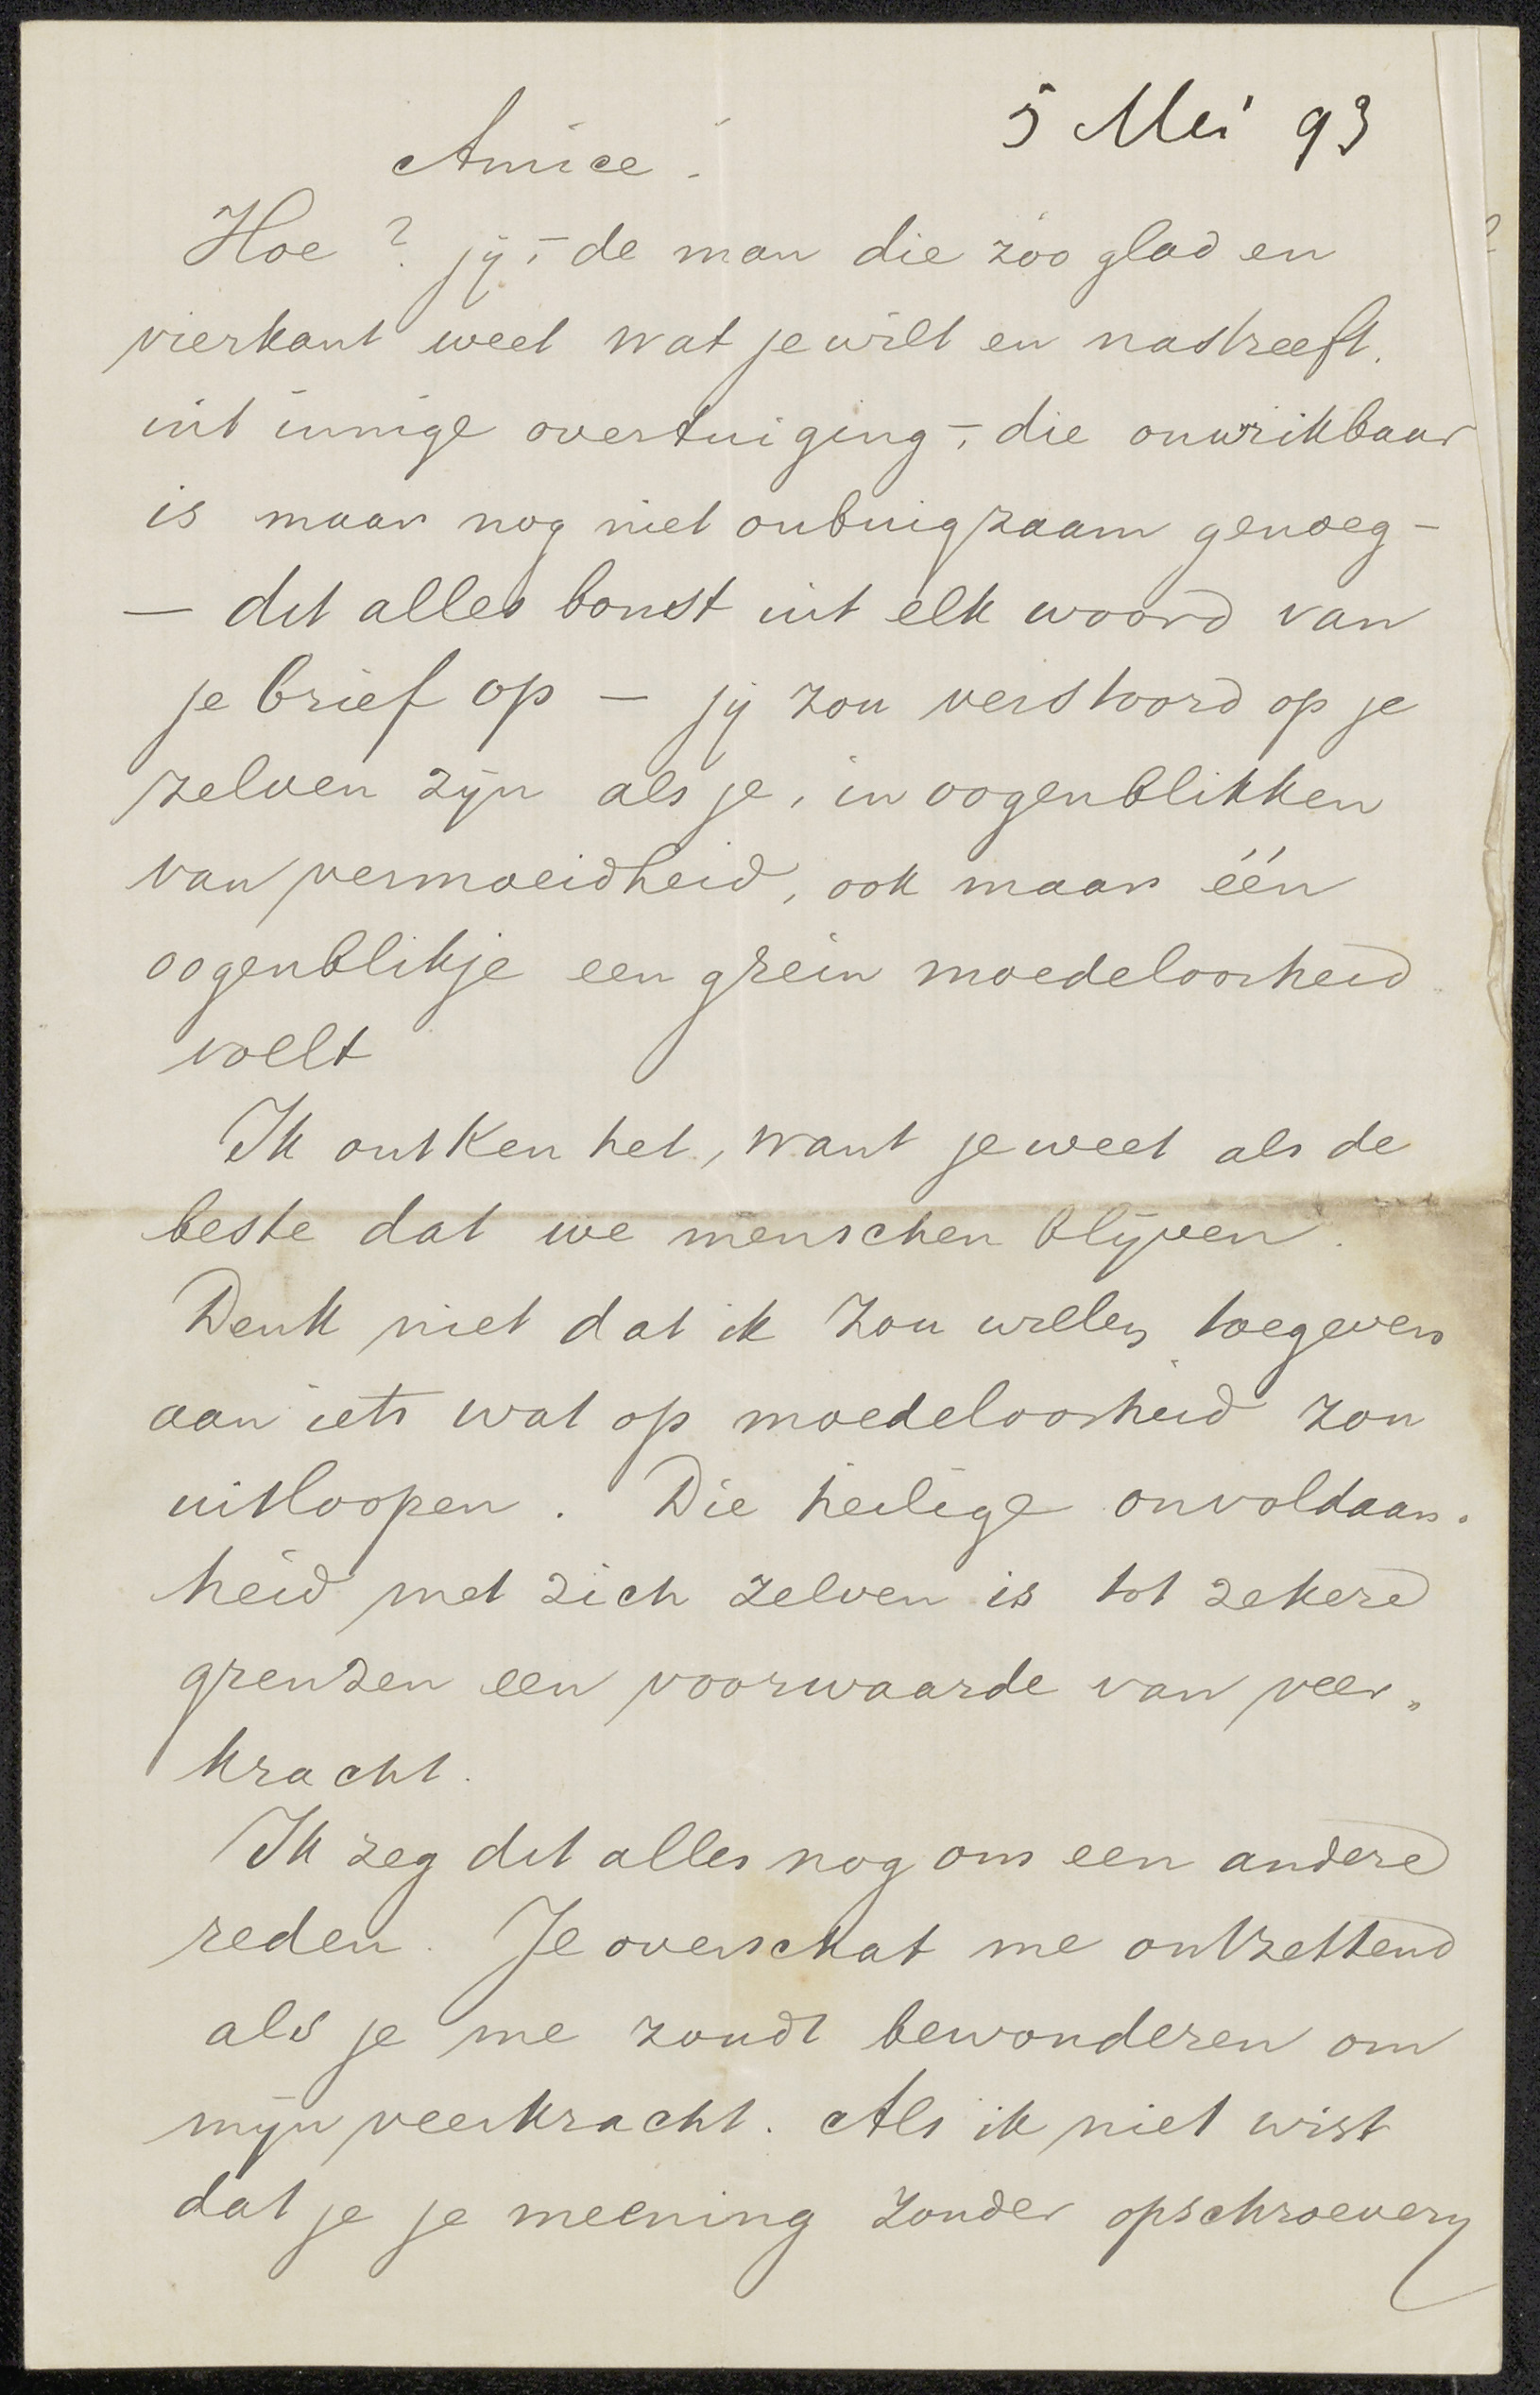 5 Mei 93
Amice!
Hoe? jij, – de man die zóo glad en
vierkant weet wat je wilt en nastreeft,
uit innige overtuiging –, die onwrikbaar
is maar nog niet onbuigzaam genoeg –
– dit alles bonst uit elk woord van
je brief op – jij zou verstoord op je
zelven zijn als je, in oogenblikken
van vermoeidheid, ook maar één
oogenblikje een grein moedeloosheid
voelt
Ik ontken het, want je weet als de
beste dat we menschen blijven.
Denk niet dat ik zou willen toegeven
aan iets wat op moedeloosheid zou
uitloopen. Die heilige onvoldaan-
heid met zich zelven is tot zekere
grenzen een voorwaarde van veer-
kracht.
Ik zeg dit alles nog om een andere
reden. Je overschat me ontzettend
als je me zoudt bewonderen om
mijn veerkracht. Als ik niet wist
dat je je meening zonder opschroeverij